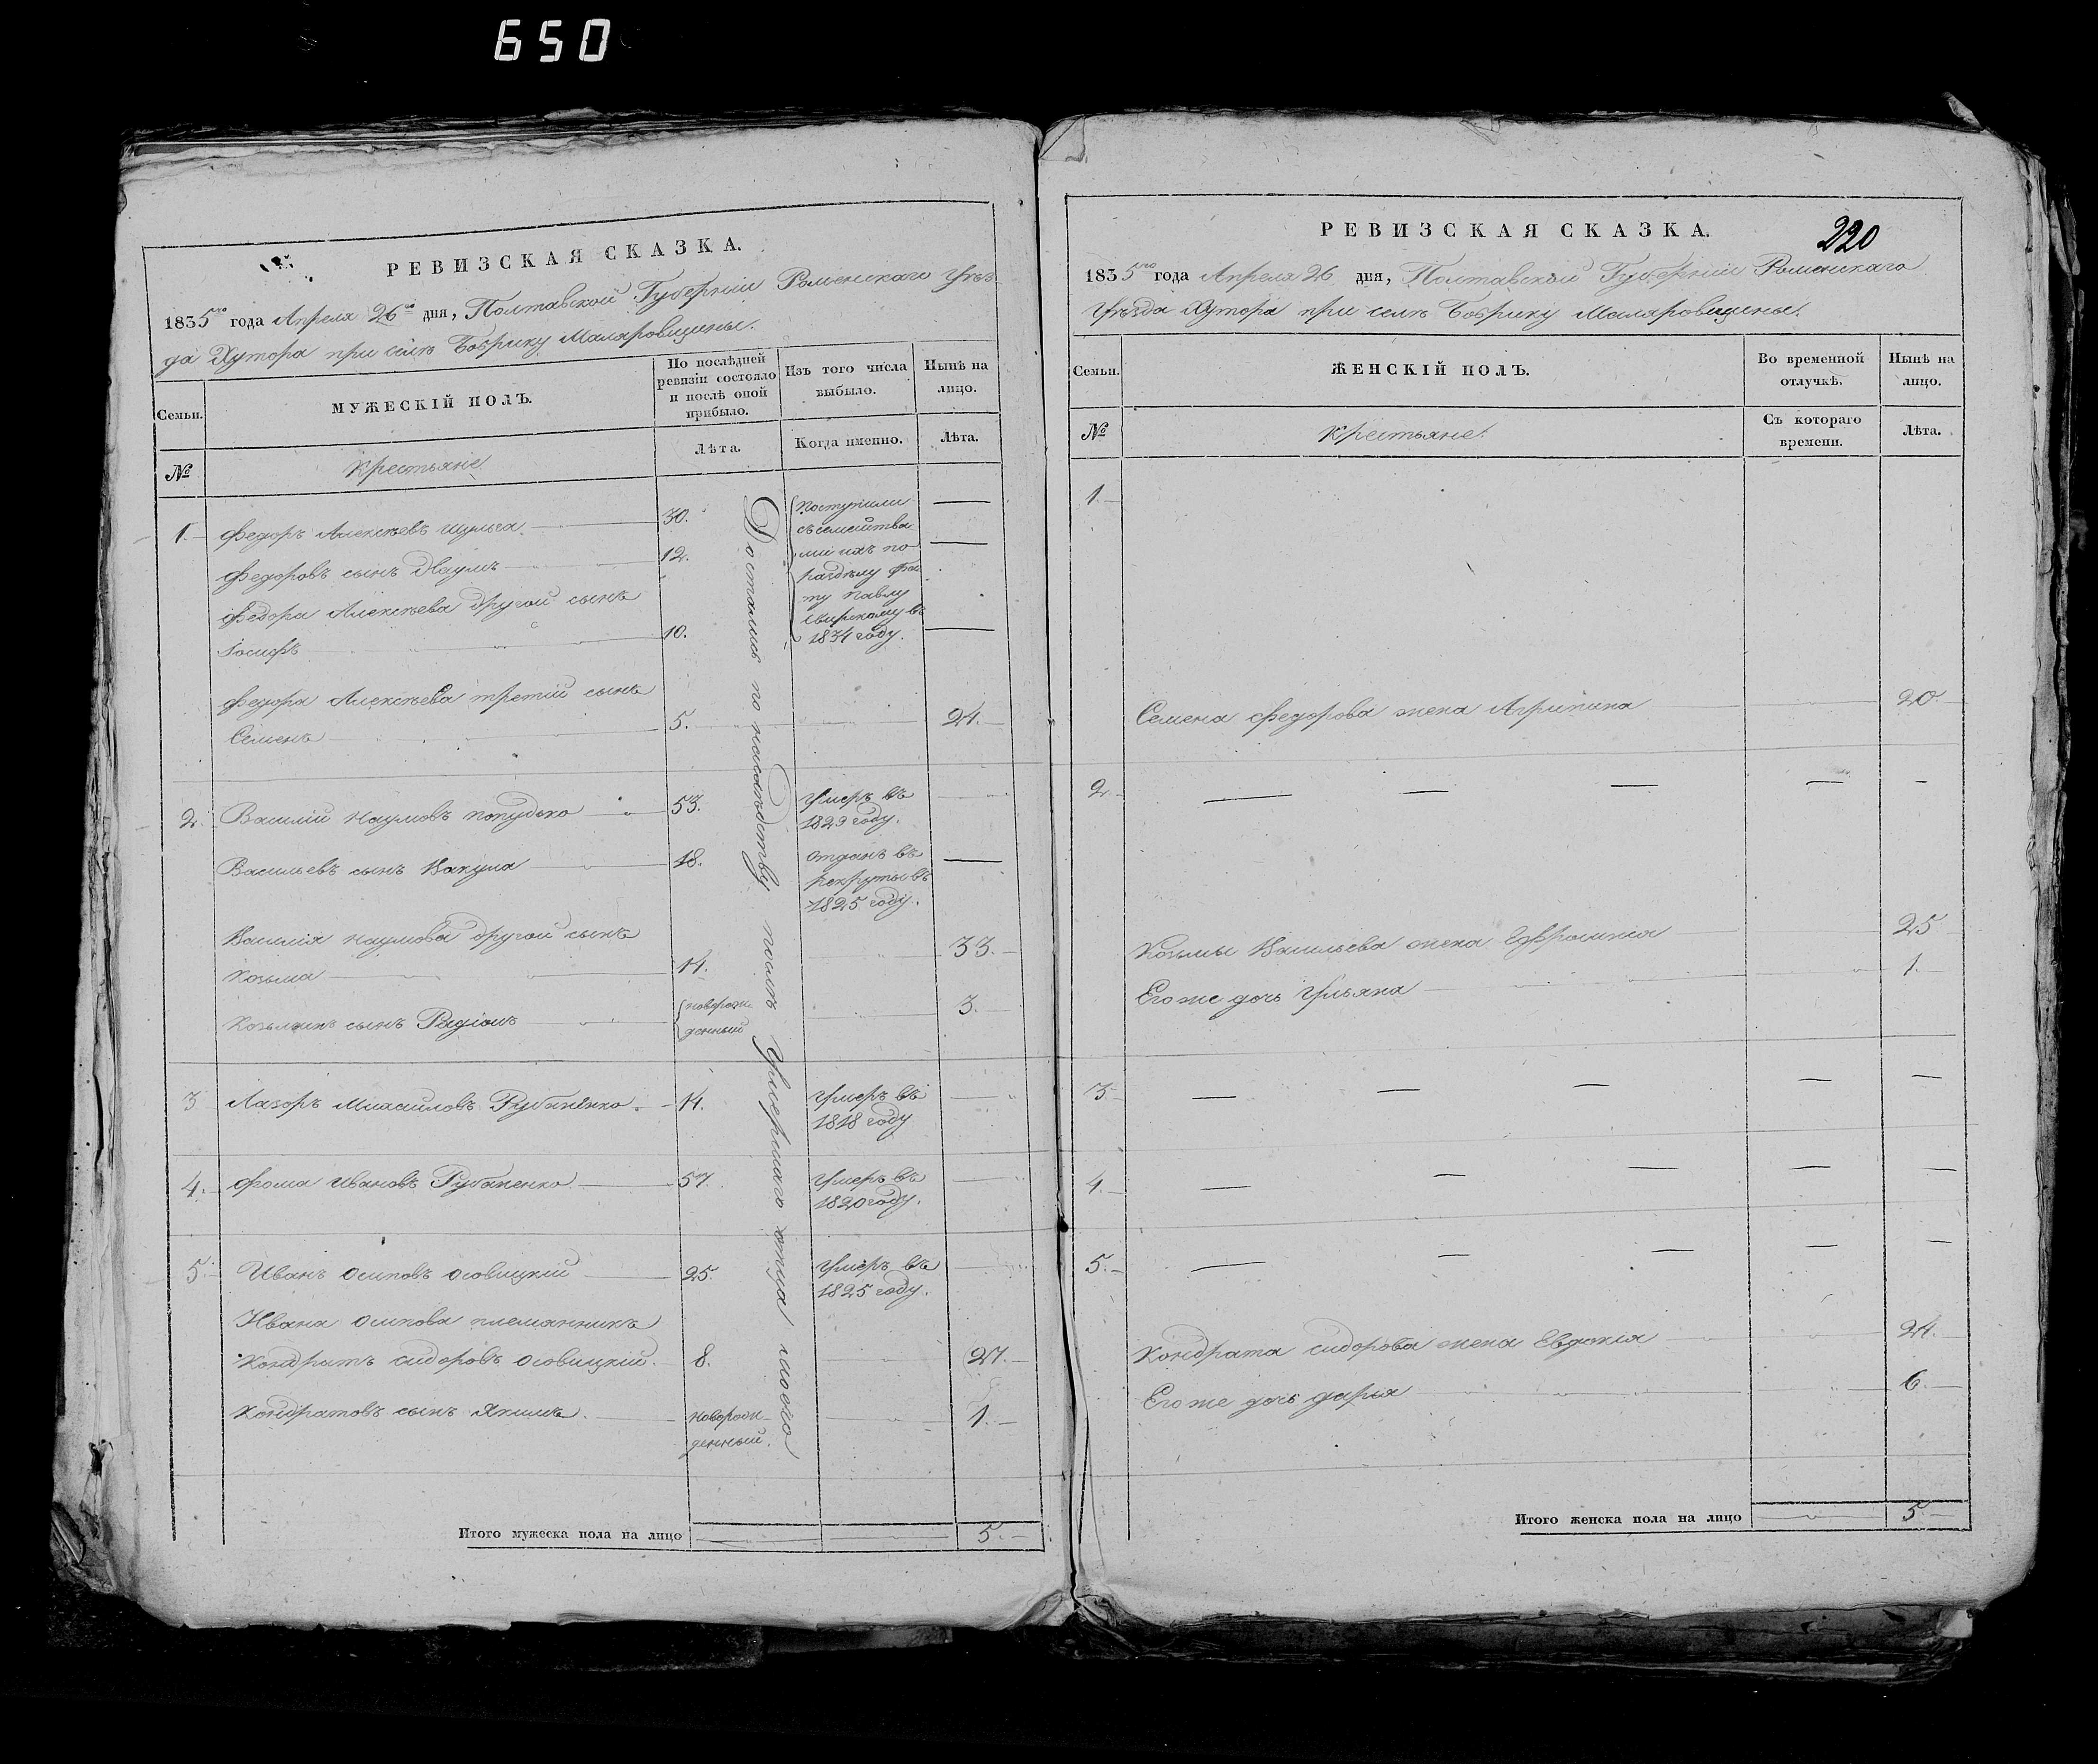 650
РЕВИЗСКАЯ СКАЗКА.
1835го года Апреля 26го дня, Полтавской Губерніи Роменскаго Уѣз-
да Хутора при селѣ Бобрику Маляровщины.
Семьи.
МУЖЕСКІЙ ПОЛЪ.
По послѣдней ревизіи состояло и послѣ оной прибыло.
Изъ того числа выбыло.
Нынѣ на лицо.
Лѣта.
Когда именно.
Лѣта.
№
Крестьяне
Достались по наслѣдству послѣ Умершаго отца моего
1. Федоръ Алексѣевъ 30. Поступили —
съ семейства
Федоровъ сынъ Наумъ 12. ми ихъ по —
разделу
Федора Алексѣева другой сынъ Павлу
въ
Іосифъ 10. 1834 году. —
Федора Алексѣева третій сынъ
Семенъ 5. 21.
2. Василій Наумовъ Попудько 53. Умеръ въ
1829 году.
Васильевъ сынъ Вакула 18. Отданъ въ —
рекруты въ
1825 году.
Василія Наумова другой сынъ
Козьма 14. 33.
Козьминъ сынъ Радіонъ новорож- 3.
денный
3 Лазоръ Михайловъ Рубаненко. 14. Умеръ въ
1818 году
4. Фома Ивановъ Рубаненко 57. Умеръ въ
1820 году.
5. Иванъ Осиповъ Осовицкій 25. Умеръ въ
1825 году.
Ивана Осипова племянникъ
Кондратъ Сидоровъ Осовицкій. 8. 27.
Кондратовъ сынъ Якимъ. Новорож- 1.
денный.
Итого мужеска пола на лицо 5.
220
РЕВИЗСКАЯ СКАЗКА.
1835го года Апреля 26 дня, Полтавской Губерніи Роменскаго
Уѣзда Хутора при селѣ Бобрику Маляровщины.
Семьи.
ЖЕНСКІЙ ПОЛЪ.
Во временной отлучкѣ.
Нынѣ на лицо.
№
Крестьяне.
Съ котораго времени.
Лѣта.
1.
Семена Федорова жена Агрипина 20.
2. — — — — —
Козьмы Васильева жена Ефросинія 25
Его же дочь Ульяна 1.
3. — — — — —
4. — — — — —
5. — — — — —
Кондрата Сидорова жена Евдокія 24.
Его же дочь Дарья 6.
Итого женска пола на лицо 5